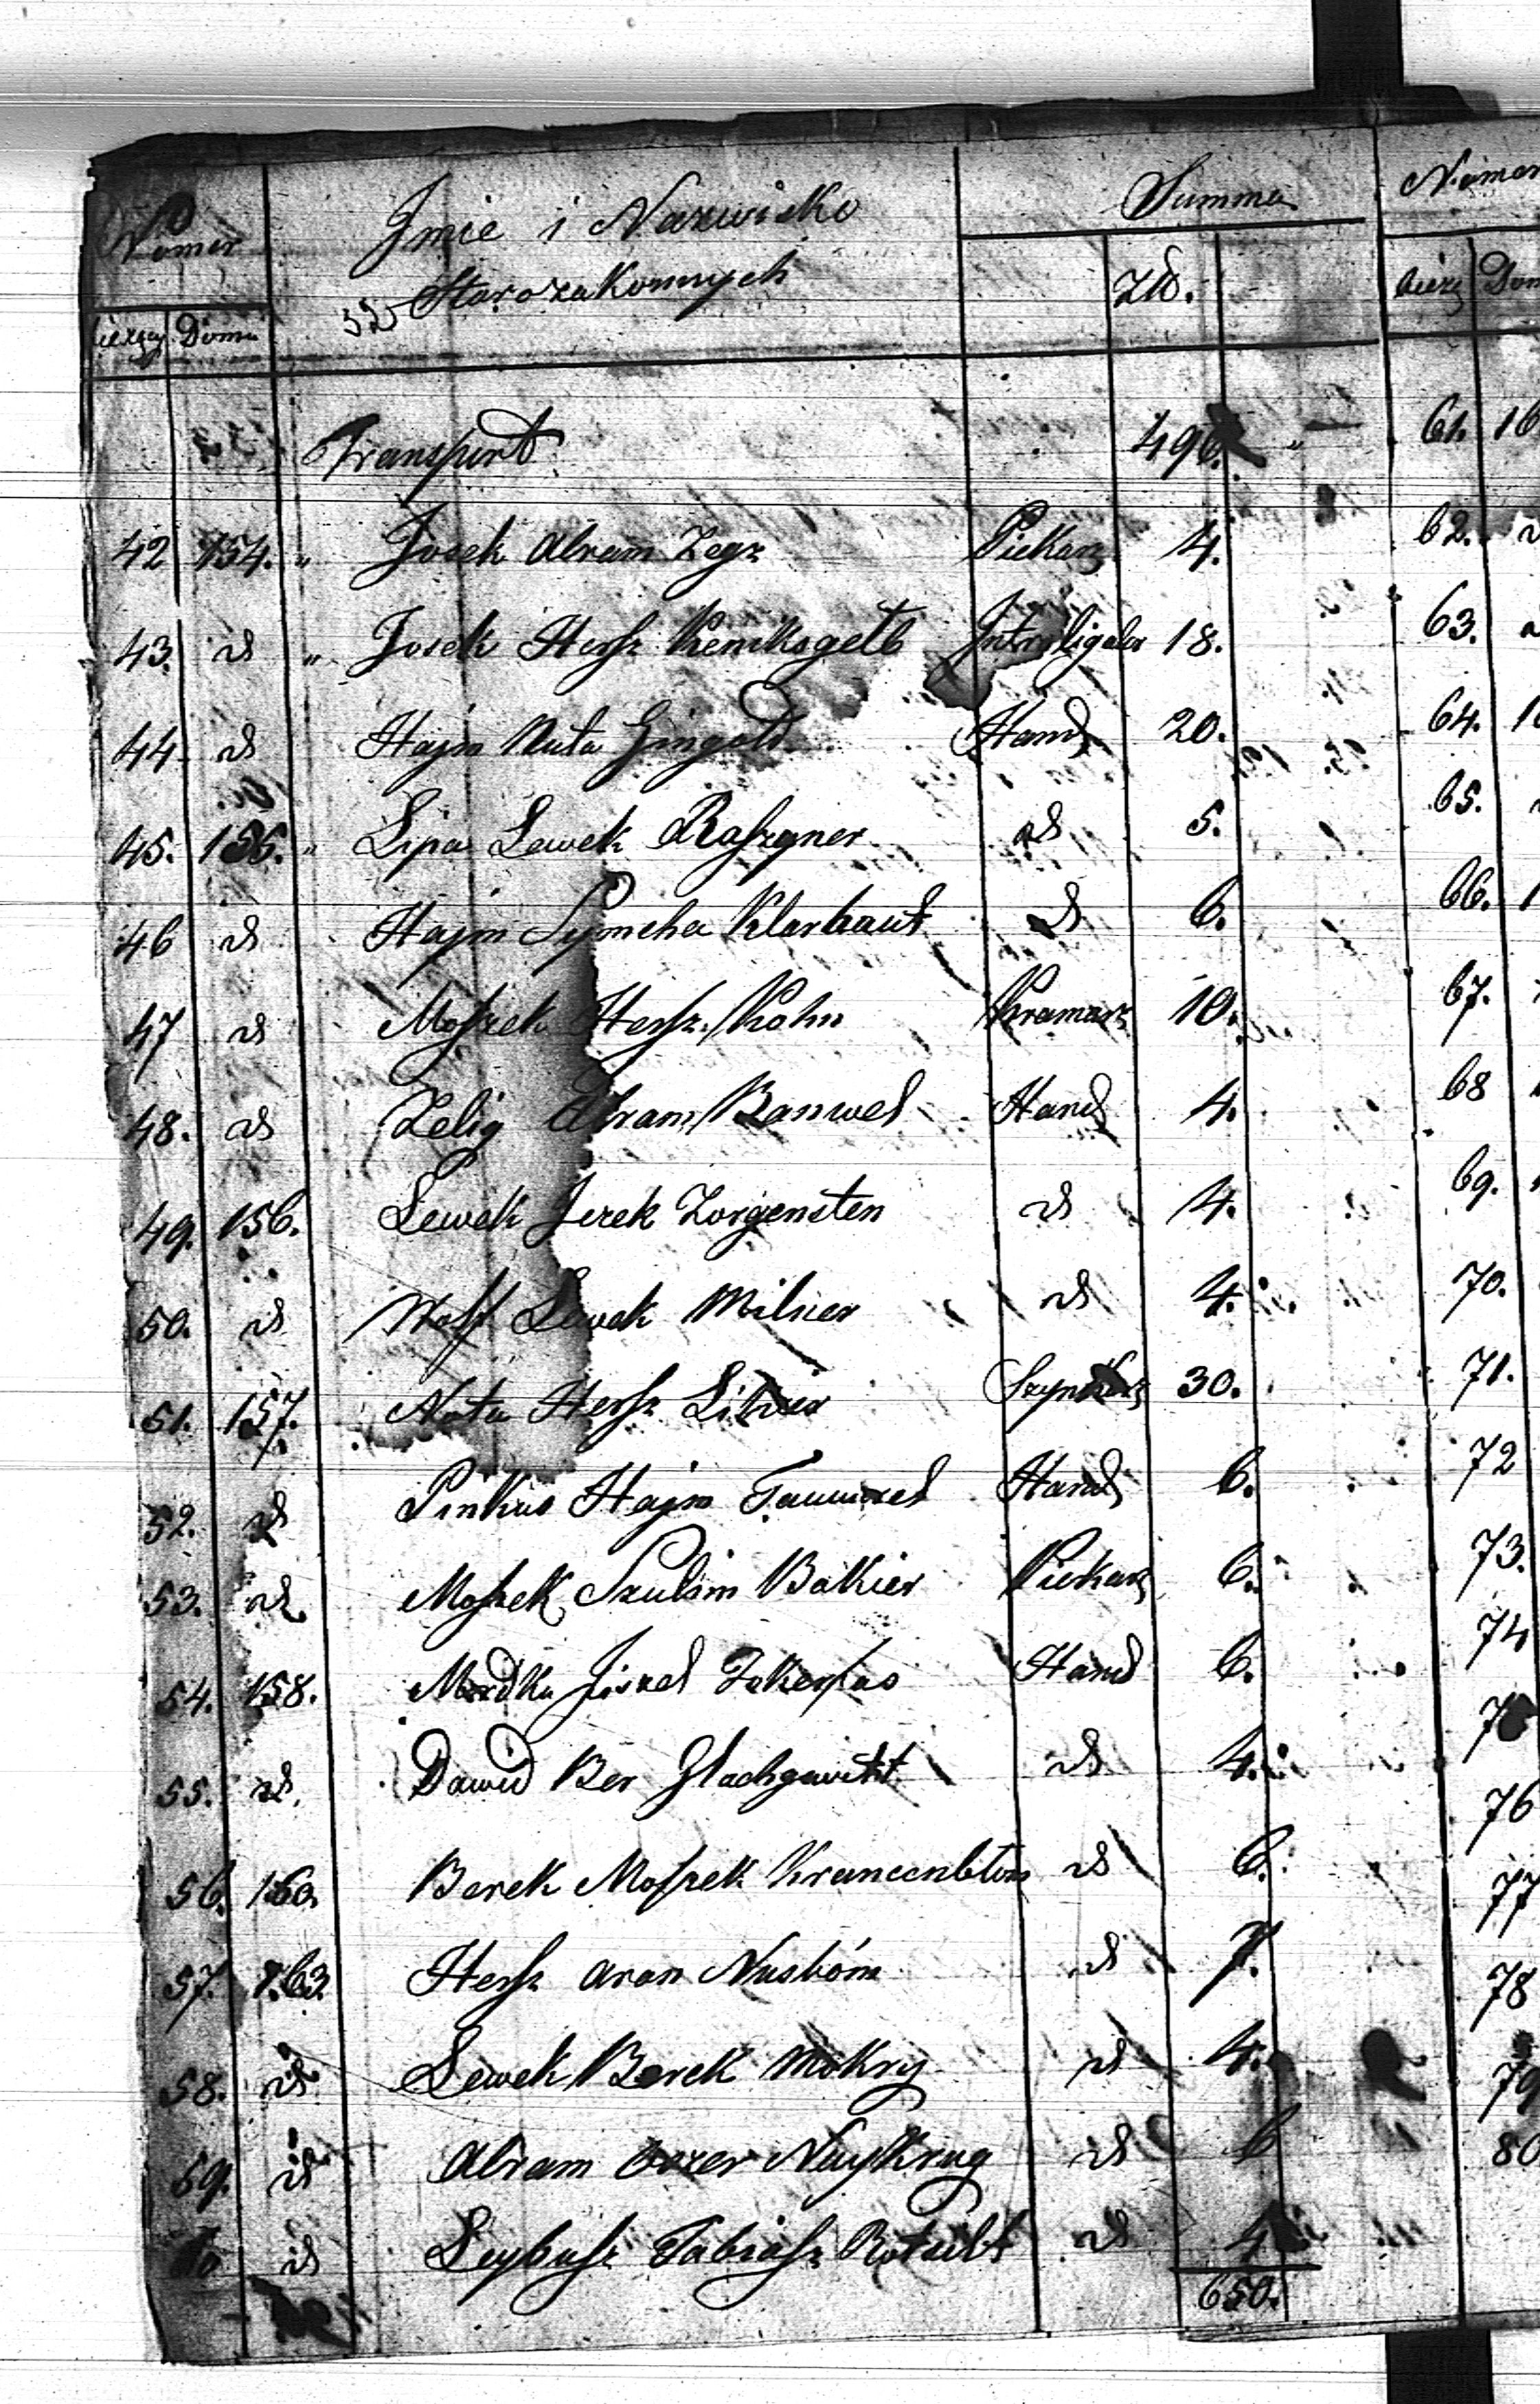 Numer Imie i Nazwisko Summa Numer
Starozakonnych Zł. bieżą Dom
bieżący Domu
Transport 496.
42 154. " Josek Abram Zegr Piekarz 4.
43. d " Josek Hersz Keniksgelb Introligator 18.
44 d Hajm Nuta Gingold Hand 20.
45. 155. " Lipa Lewek Raszyner d 5.
46 d Hajm Symcha Klarhaut d 6.
47 d Moszek Hersz Kohn Kramarz 10.
48. d Zelig Abram Banwel Hand 4.
49. 156. Lewek Icek Zorgensten d 4.
50. d Wolf Lewek Milner d 4.
51. 157. Nota Hersz Szynkarz 30.
52. d Pinkus Hajm Hand 6.
53. d. Moszek Szulim Bakier Piekarz 6.
54. 158. Mordka Jisrael Hand 6.
55. d. Dawid Ber d 4.
56. 160. Berek Moszek d 6.
57. 163 Hersz Aron Nusbóm d 7.
58. d Lewek Berek Mokry d 4.
59. d Abram Nuykrug d 6
60 d Leybusz Tobiasz d 4
650.
61. 16
62.
63.
64. 1
65.
66. 1
67.
68
69.
70.
71.
72
73.
74
76
77
78
79
80